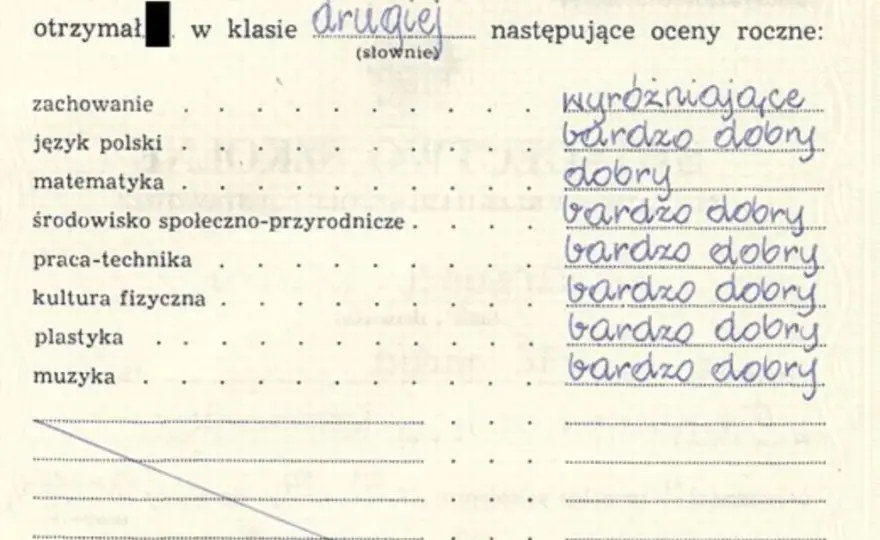 otrzymał w klasie drugiej następujące oceny roczne:
(słownie)
zachowanie . . . . . . . . . wyróżniające
język polski . . . . . . . . . bardzo dobry
matematyka . . . . . . . . . . dobry
środowisko społeczno-przyrodnicze . . . . bardzo dobry
praca-technika . . . . . . . . . bardzo dobry
kultura fizyczna . . . . . . . . . bardzo dobry
plastyka . . . . . . . . . . bardzo dobry
muzyka . . . . . . . . . . . bardzo dobry